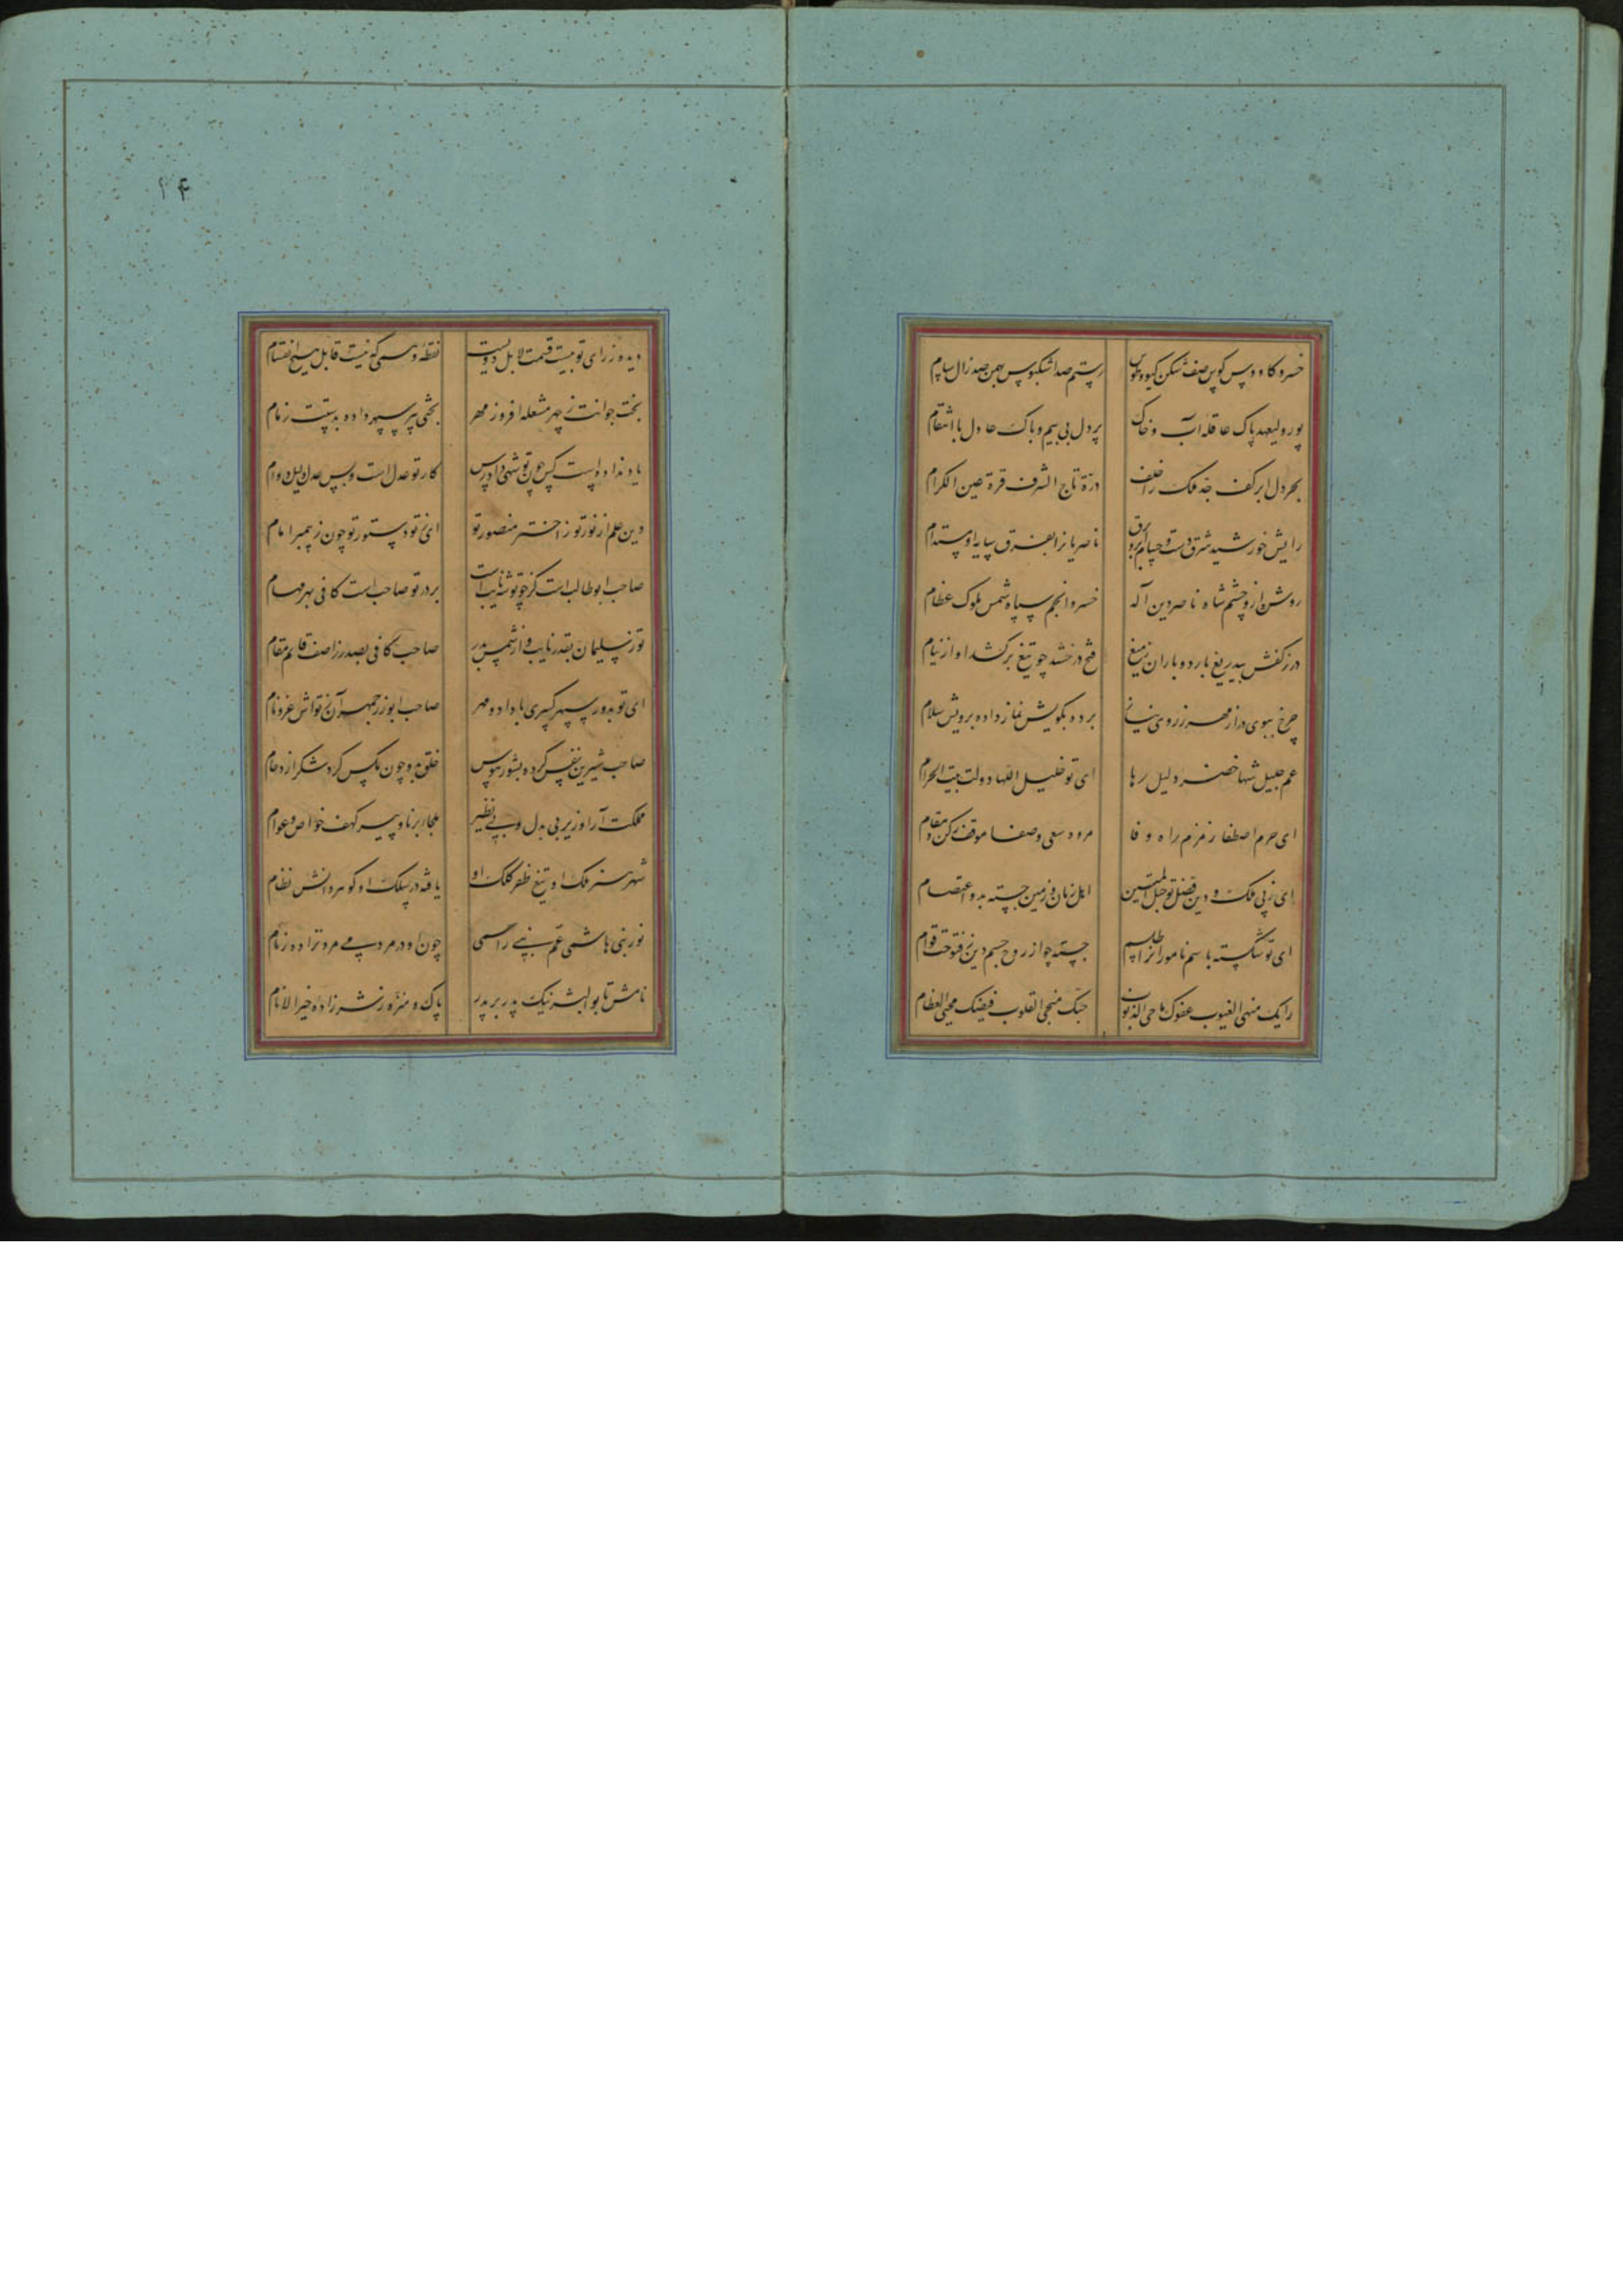 خسرو کاووس کوس صف شکن گیو و طوس
رستم صد اشکبوس بهمن صد زال سام
پور ولیعهد پاک عاقله آب و خاک
پردل بی بیم و باک عادل با انتقام
بحر دل ابر کف جد فلک را خلف
درّة تاج الشرف قرة عین الکرام
رایش خورشید شرق دست و حسام ابر و برق
ناصر یانرا بفرق سایه او مستدام
روشن ازو چشم شاه ناصر دین اله
خسرو انجم سپاه شمس ملوک عظام
درز کفش بیدریغ بارد و باران ز میغ
فتح درخشد چو تیغ برکشد او از نیام
چرخ ببوی دراز مهر ز روی نیاز
برده بکویش نماز داده برویش سلام
عم جلیل شها خضر دلیل رها
ای تو خلیل اللها دولت بیت الحرام
ای حرم اصطفا زمزم راه وفا
مروه سعی و صفا موقف رکن و مقام
ای ز پی ملک و دین فضل تو حبل المتین
اهل زمان و زمین جسته بدو اعتصام
ای تو شکسته باسم نامورانرا طلسم
جسته چو از روح جسم دین ز فتوحت قوام
رایک منهی الغیوب عفوک ماحی الذنوب
حبک منجی القلوب فیضک محیی العظام
۱۴
دیده ز رای تو بیست قیمت لا بل دویست
نقطه وهمی که نیست قابل هیچ انقسام
بخت جوانت ز چهر مشعله افروز مهر
بختی پیر سپهر داده بدستت زمام
یا و نداده است کس چون تو شهی دادرس
کار تو عدل است و بس عدل و لیل و وام
دین علم از نور تو ز اختر منصور تو
ای ز تو دستور تو چون ز پیمبر امام
صاحب ابوطالب است کز چو تو شه نایب است
بر در تو صاحب است کافی بهر مهام
تو ز سلیمان بقدر نایب و از شمس بدر
صاحب کافی بصدر ز اصف قائم مقام
ای تو بدور سپهر کسری با داد و مهر
صاحب ابوزرجمهر آن ز تواش عز و نام
صاحب شیرین نفس کرده بشورر هوس
خلق برو چون مگس گرد شکر ازدحام
مملکت آرا وزیر بی بدل و بی نظیر
ملجا برنا و پیر کهف خواص و عوام
شهر هنر ملک او تیغ ظفر کلک او
یافته در سلک او گوهر دانش نظام
نور بنی هاشمی عم نبی را سمی
چون او در مردمی مرد نزاده ز مام
نامش تا بو البشر نیک پدر بر پدر
پاک و منزه ز شر زاده خیر الانام